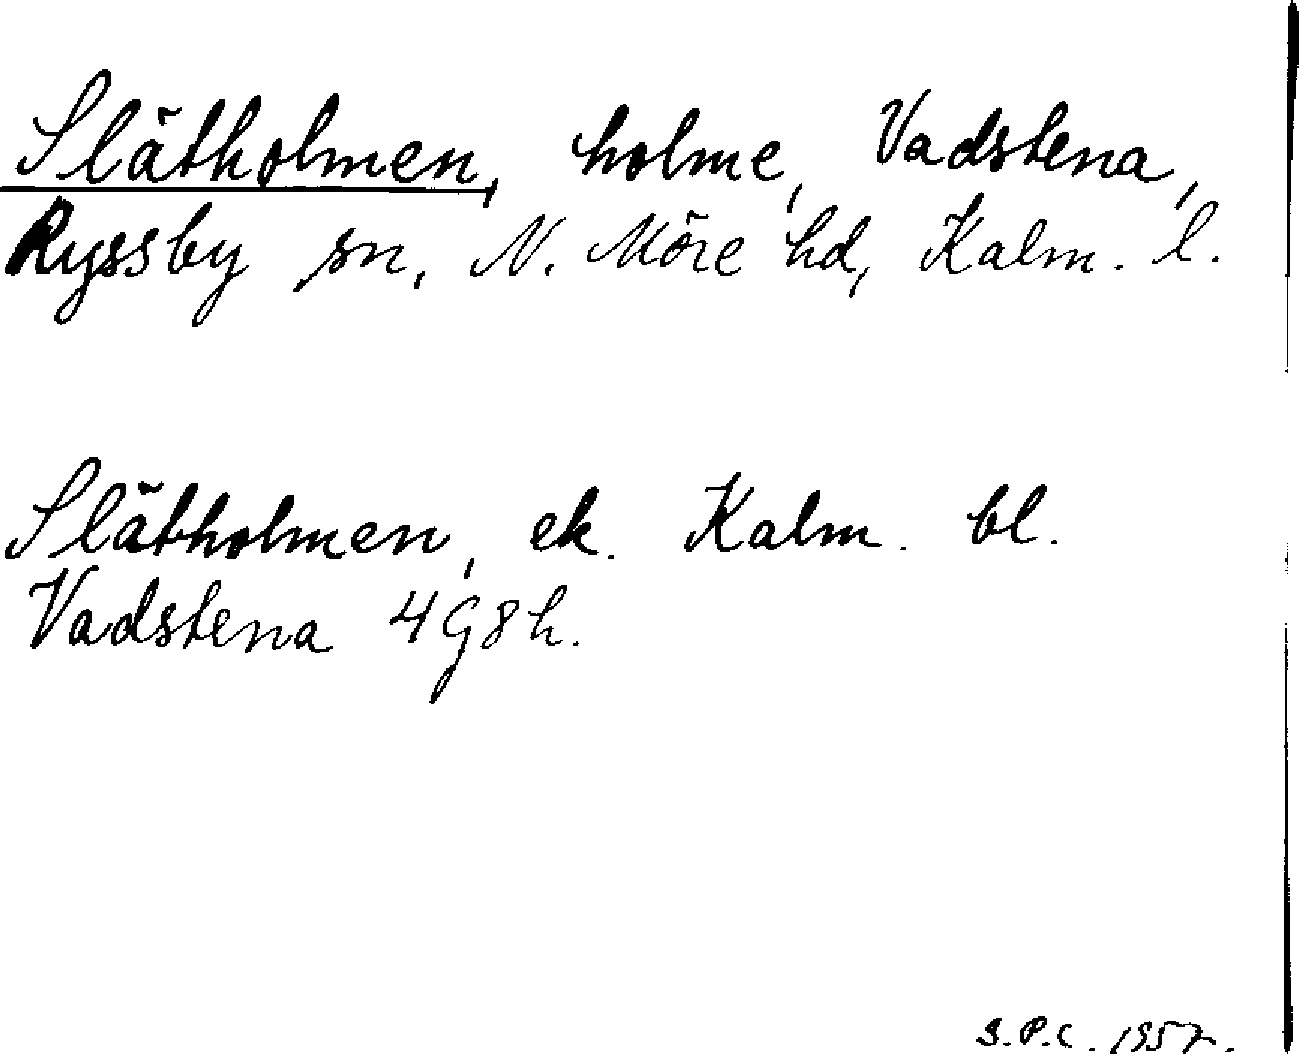 Slätholmen, holme, Vadstena,
Ryssby sn, N. Möre hd, Kalm. l.
Slätholmen, ek. Kalm. bl.
Vadstena 4 G 8 h.
S.P.C. 1957.